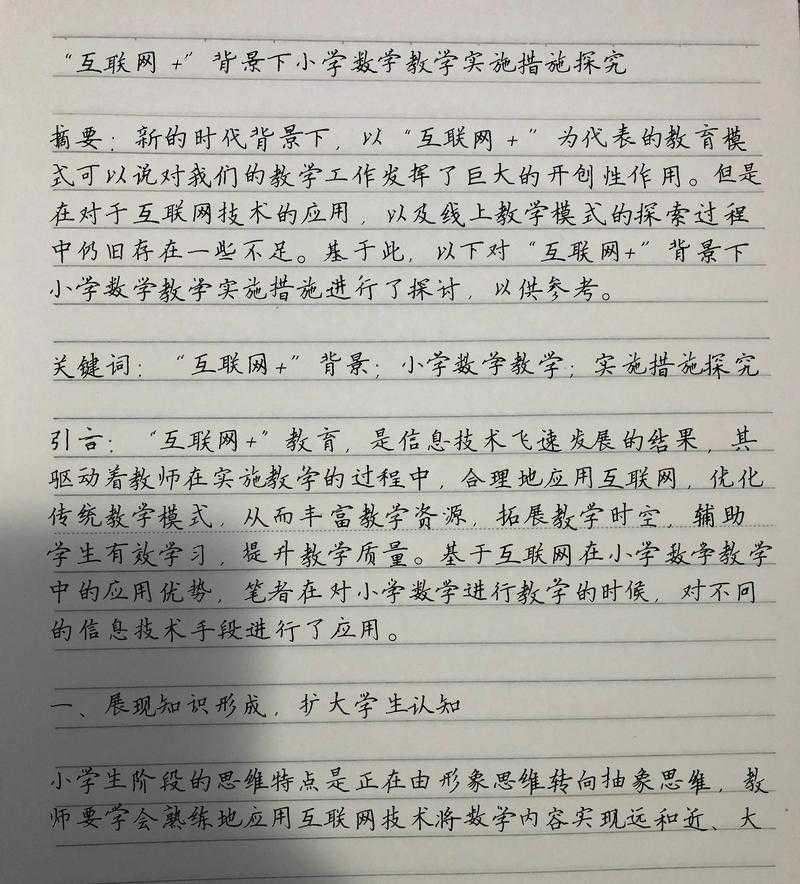 “互联网 +”背景下小学数学教学实施措施探究
摘要：新的时代背景下，以“互联网 +”为代表的教育模
式可以说对我们的教学工作发挥了巨大的开创性作用。但是
在对于互联网技术的应用，以及线上教学模式的探索过程
中仍旧存在一些不足。基于此，以下对“互联网+”背景下
小学数学教学实施措施进行了探讨，以供参考。
关键词：“互联网+”背景；小学数学教学；实施措施探究
引言：“互联网+”教育，是信息技术飞速发展的结果，其
驱动着教师在实施教学的过程中，合理地应用互联网，优化
传统教学模式，从而丰富教学资源，拓展教学时空，辅助
学生有效学习，提升教学质量。基于互联网在小学数学教学
中的应用优势，笔者在对小学数学进行教学的时候，对不同
的信息技术手段进行了应用。
一、展现知识形成，扩大学生认知
小学生阶段的思维特点是正在由形象思维转向抽象思维，教
师要学会熟练地应用互联网技术将数学内容实现远和近、大